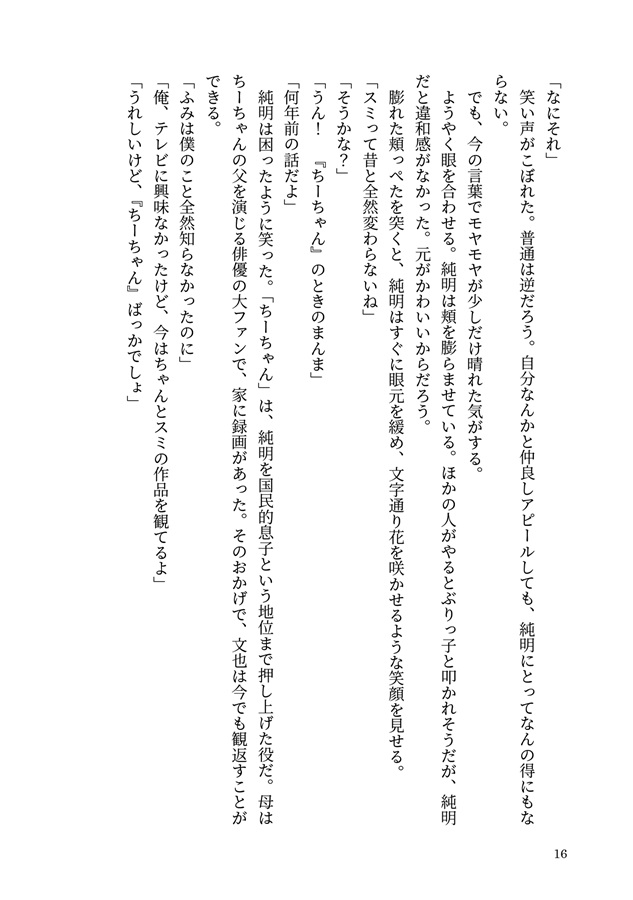 「なにそれ」
　笑い声がこぼれた。普通は逆だろう。自分なんかと仲良しアピールしても、純明にとってなんの得にもな
らない。
　でも、今の言葉でモヤモヤが少しだけ晴れた気がする。
　ようやく眼を合わせる。純明は頬を膨らませている。ほかの人がやるとぶりっ子と叩かれそうだが、純明
だと違和感がなかった。元がかわいいからだろう。
　膨れた頬っぺたを突くと、純明はすぐに眼元を緩め、文字通り花を咲かせるような笑顔を見せる。
「スミって昔と全然変わらないね」
「そうかな？」
「うん！　『ちーちゃん』のときのまんま」
「何年前の話だよ」
　純明は困ったように笑った。「ちーちゃん」は、純明を国民的息子という地位まで押し上げた役だ。母は
ちーちゃんの父を演じる俳優の大ファンで、家に録画があった。そのおかげで、文也は今でも観返すことが
できる。
「ふみは僕のこと全然知らなかったのに」
「俺、テレビに興味なかったけど、今はちゃんとスミの作品を観てるよ」
「うれしいけど、『ちーちゃん』ばっかでしょ」
16